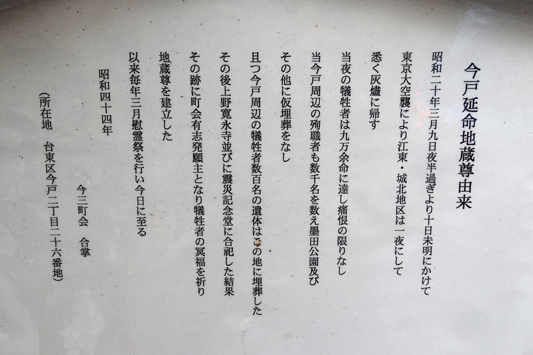 今戸延命地蔵尊由来
昭和二十年三月九日夜半過ぎより十日未明にかけて
東京大空襲により江東・城北地区は一夜にして
悉く灰燼に帰す
当夜の犠牲者は九万余命に達し痛恨の限りなし
当今戸周辺の殉職者も数千名を数え墨田公園及び
その他に仮埋葬をなし
且つ今戸周辺の犠牲者数百名の遺体はこの地に埋葬した
その後上野寛永寺並びに震災記念堂に合祀した結果
その跡に町会有志発願主となり犠牲者の冥福を祈り
地蔵尊を建立した
以来毎年三月慰霊祭を行い今日に至る
昭和四十四年
今三町会 合掌
(所在地 台東区今戸二丁目二十六番地)